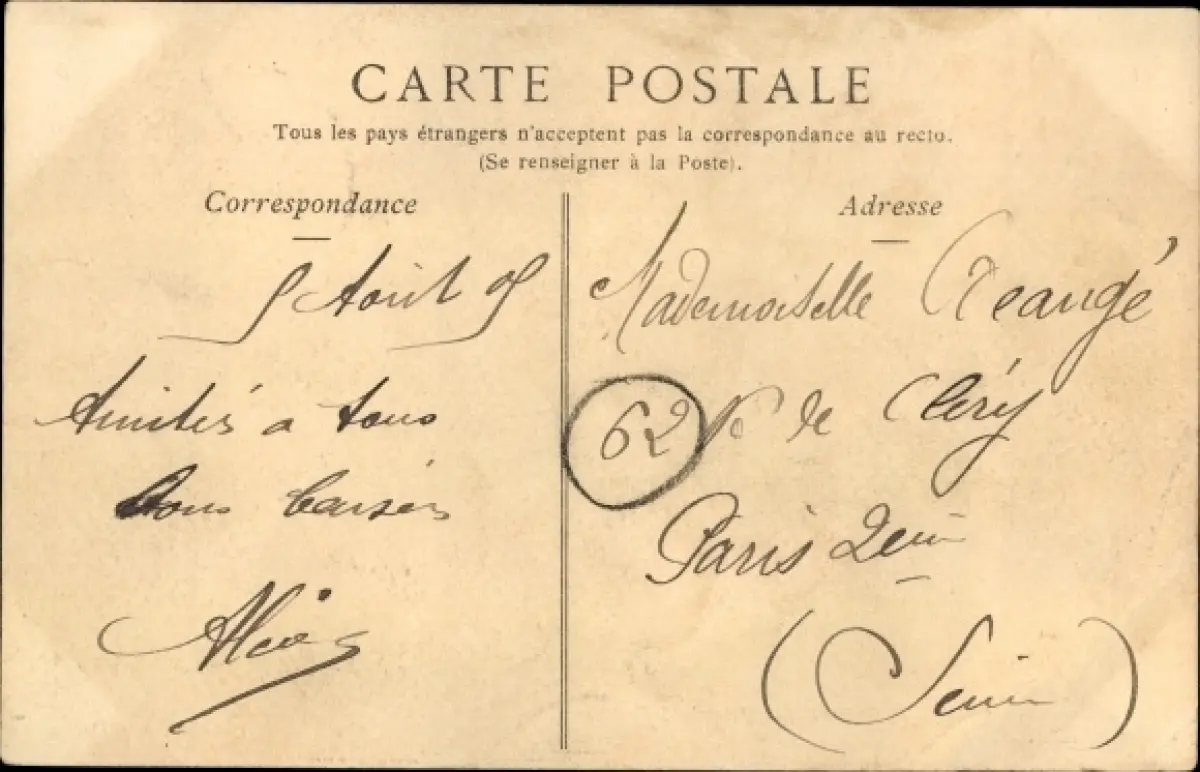 CARTE POSTALE
Tous les pays étrangers n'acceptent pas la correspondance au recto.
(Se renseigner à la Poste).
Correspondance
Août
Amitiés à tous
bons baisers
Adresse
Mademoiselle
62 de Cléry
Paris 2em
(Seine)